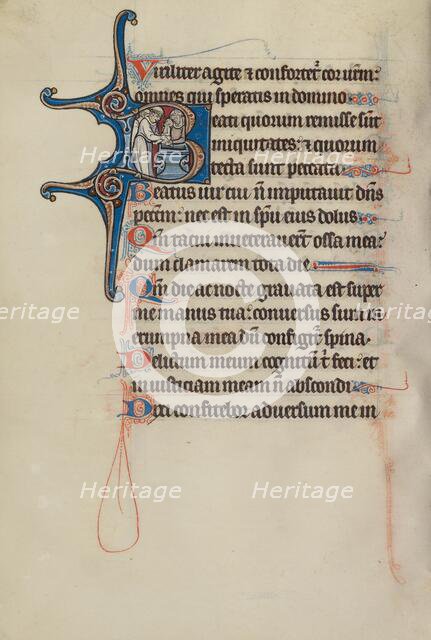 Viriliter agite & confortet̾ cor ur̄m:
omnes qui speratis in domino
Beati quorum remisse sunt
iniquitates: & quorum
tecta sunt peccata
Beatus uir cui n̄ imputauit dn̄s
pecc̄m: nec est in sp̄u eius dolus
Qm̄ tacui inueterauer̄t ossa mea:
dum clamarem tota die
Qm̄ die ac nocte grauata est super
me manus tua: conuersus sum in
erumpna mea dū configit̾ spina
Delictum meum cognitū t̾ feci: et
iniusticiam meam n̄ abscondi
Dixi confitebor aduersum me in
Heritage Heritage Heritage
Heritage Heritage Heritage
Heritage Heritage